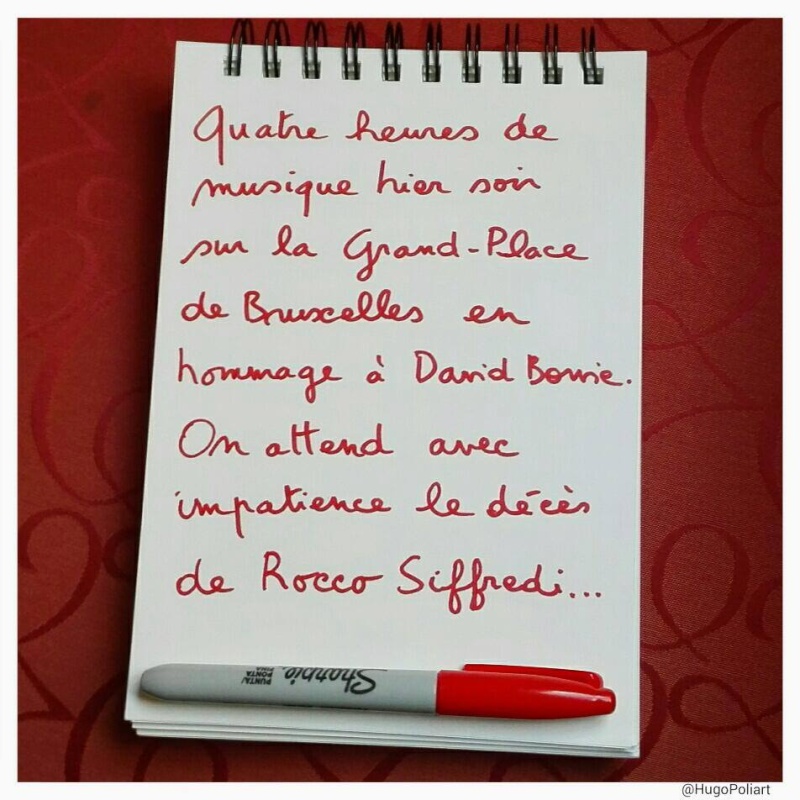 Quatre heures de
musique hier soir
sur la Grand-Place
de Bruxelles en
hommage à David Bowie.
On attend avec
impatience le décès
de Rocco Siffredi...
Sharpie.
PUNTA/
PONTA
FINA
@HugoPoliart